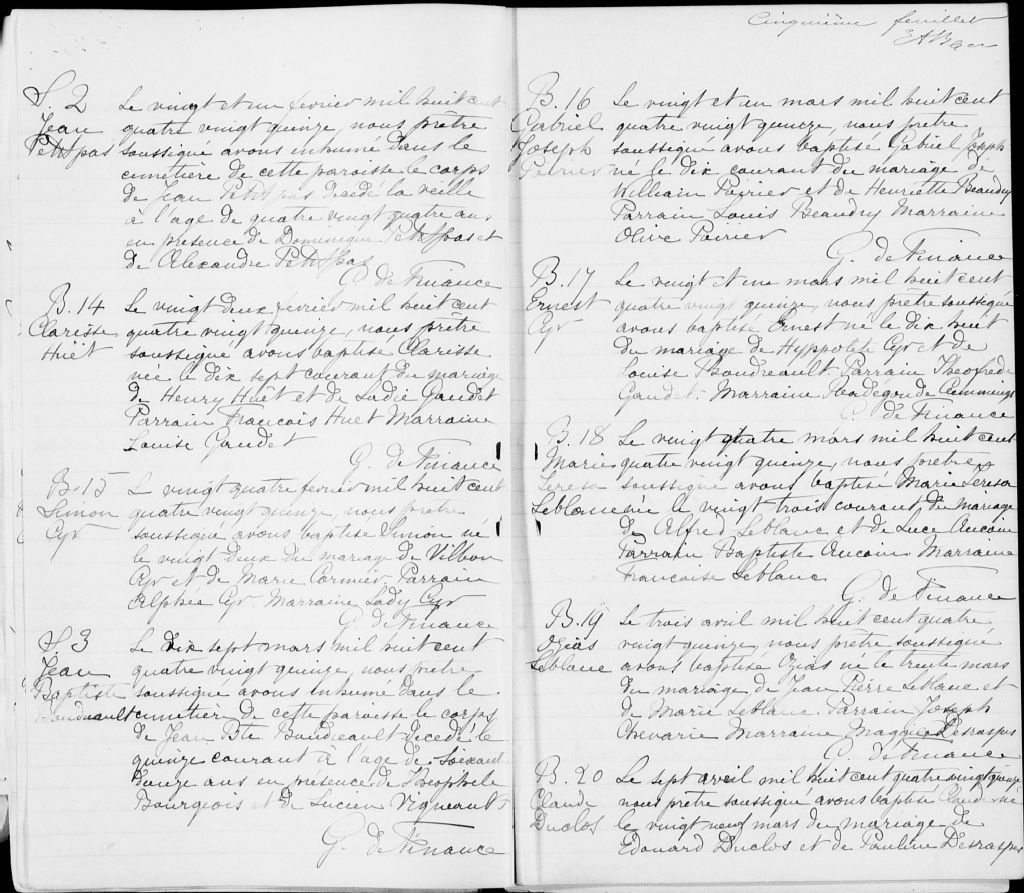 S. 2 Le vingt et un fevrier mil huit cent
Jean quatre vingt quinze, nous prêtre
Petitpas soussigné avons inhumé dans le
cimetière de cette paroisse le corps
de Jean Petitpas décédé la veille
à l'age de quatre vingt quatre ans
en presence de Dominique Petitpas et
de Alexandre Petitpas
G. de Finance
B. 14 Le vingt deux fevrier mil huit cent
Clarisse quatre vingt quinze, nous prêtre
Huet soussigné avons baptisé Clarisse
née le dix sept courant du mariage
de Henry Huet et de Sadie Gaudet
Parrain Francois Huet Marraine
Louise Gaudet
G. de Finance
B. 15 Le vingt quatre fevrier mil huit cent
Simon quatre vingt quinze, nous pretre
Cyr soussigné avons baptisé Simon né
le vingt deux du mariage de Vilbon
Cyr et de Marie Cormier. Parrain
Alphée Cyr. Marraine Lady Cyr
G. de Finance
S. 3 Le dix sept mars mil huit cent
Jean quatre vingt quinze, nous pretre
Baptiste soussigné avons inhumé dans le
Boudreault cimetière de cette paroisse le corps
de Jean Bte. Boudreault decedé le
quinze courant à l'age de Soixante
douze ans en présence de Theophile
Bourgeois et de Lucien Vigneault
G. de Finance
Cinquième feuillet
B. 16 Le vingt et un mars mil huit cent
Gabriel quatre vingt quinze, nous pretre
Joseph soussigné avons baptisé Gabriel Joseph
Poirier né le dix courant du mariage de
William Poirier et de Henriette Beaudry
Parrain Louis Beaudry Marraine
Olive Poirier
G. de Finance
B. 17 Le vingt et un mars mil huit cent
Ernest quatre vingt quinze, nous pretre soussigné
Cyr avons baptisé Ernest né le dix huit
du mariage de Hyppolite Cyr et de
Louise Boudreault. Parrain Theofrede
Gaudet. Marraine Radegonde Cummings
G. de Finance
B. 18 Le vingt quatre mars mil huit cent
Marie quatre vingt quinze, nous pretre
Teresa soussigné avons baptisé Marie Teresa
Leblanc née le vingt trois courant, du mariage
de Alfred Leblanc et de Luce Aucoin
Parrain Baptiste Aucoin Marraine
Francoise Leblanc
G. de Finance
B. 19 Le trois avril mil huit cent quatre
Ozias vingt quinze, nous pretre soussigné
Leblanc avons baptisé Ozias né le trente mars
du mariage de Jean Pierre Leblanc et
de Marie Leblanc. Parrain Joseph
Chevarie Marraine Desraspes
G. de Finance
B. 20 Le sept avril mil huit cent quatre vingt quinze
Claude nous pretre soussigné avons baptisé Claude né
Duclos le vingt neuf mars du mariage de
Edouard Duclos et de Pauline Desraspes